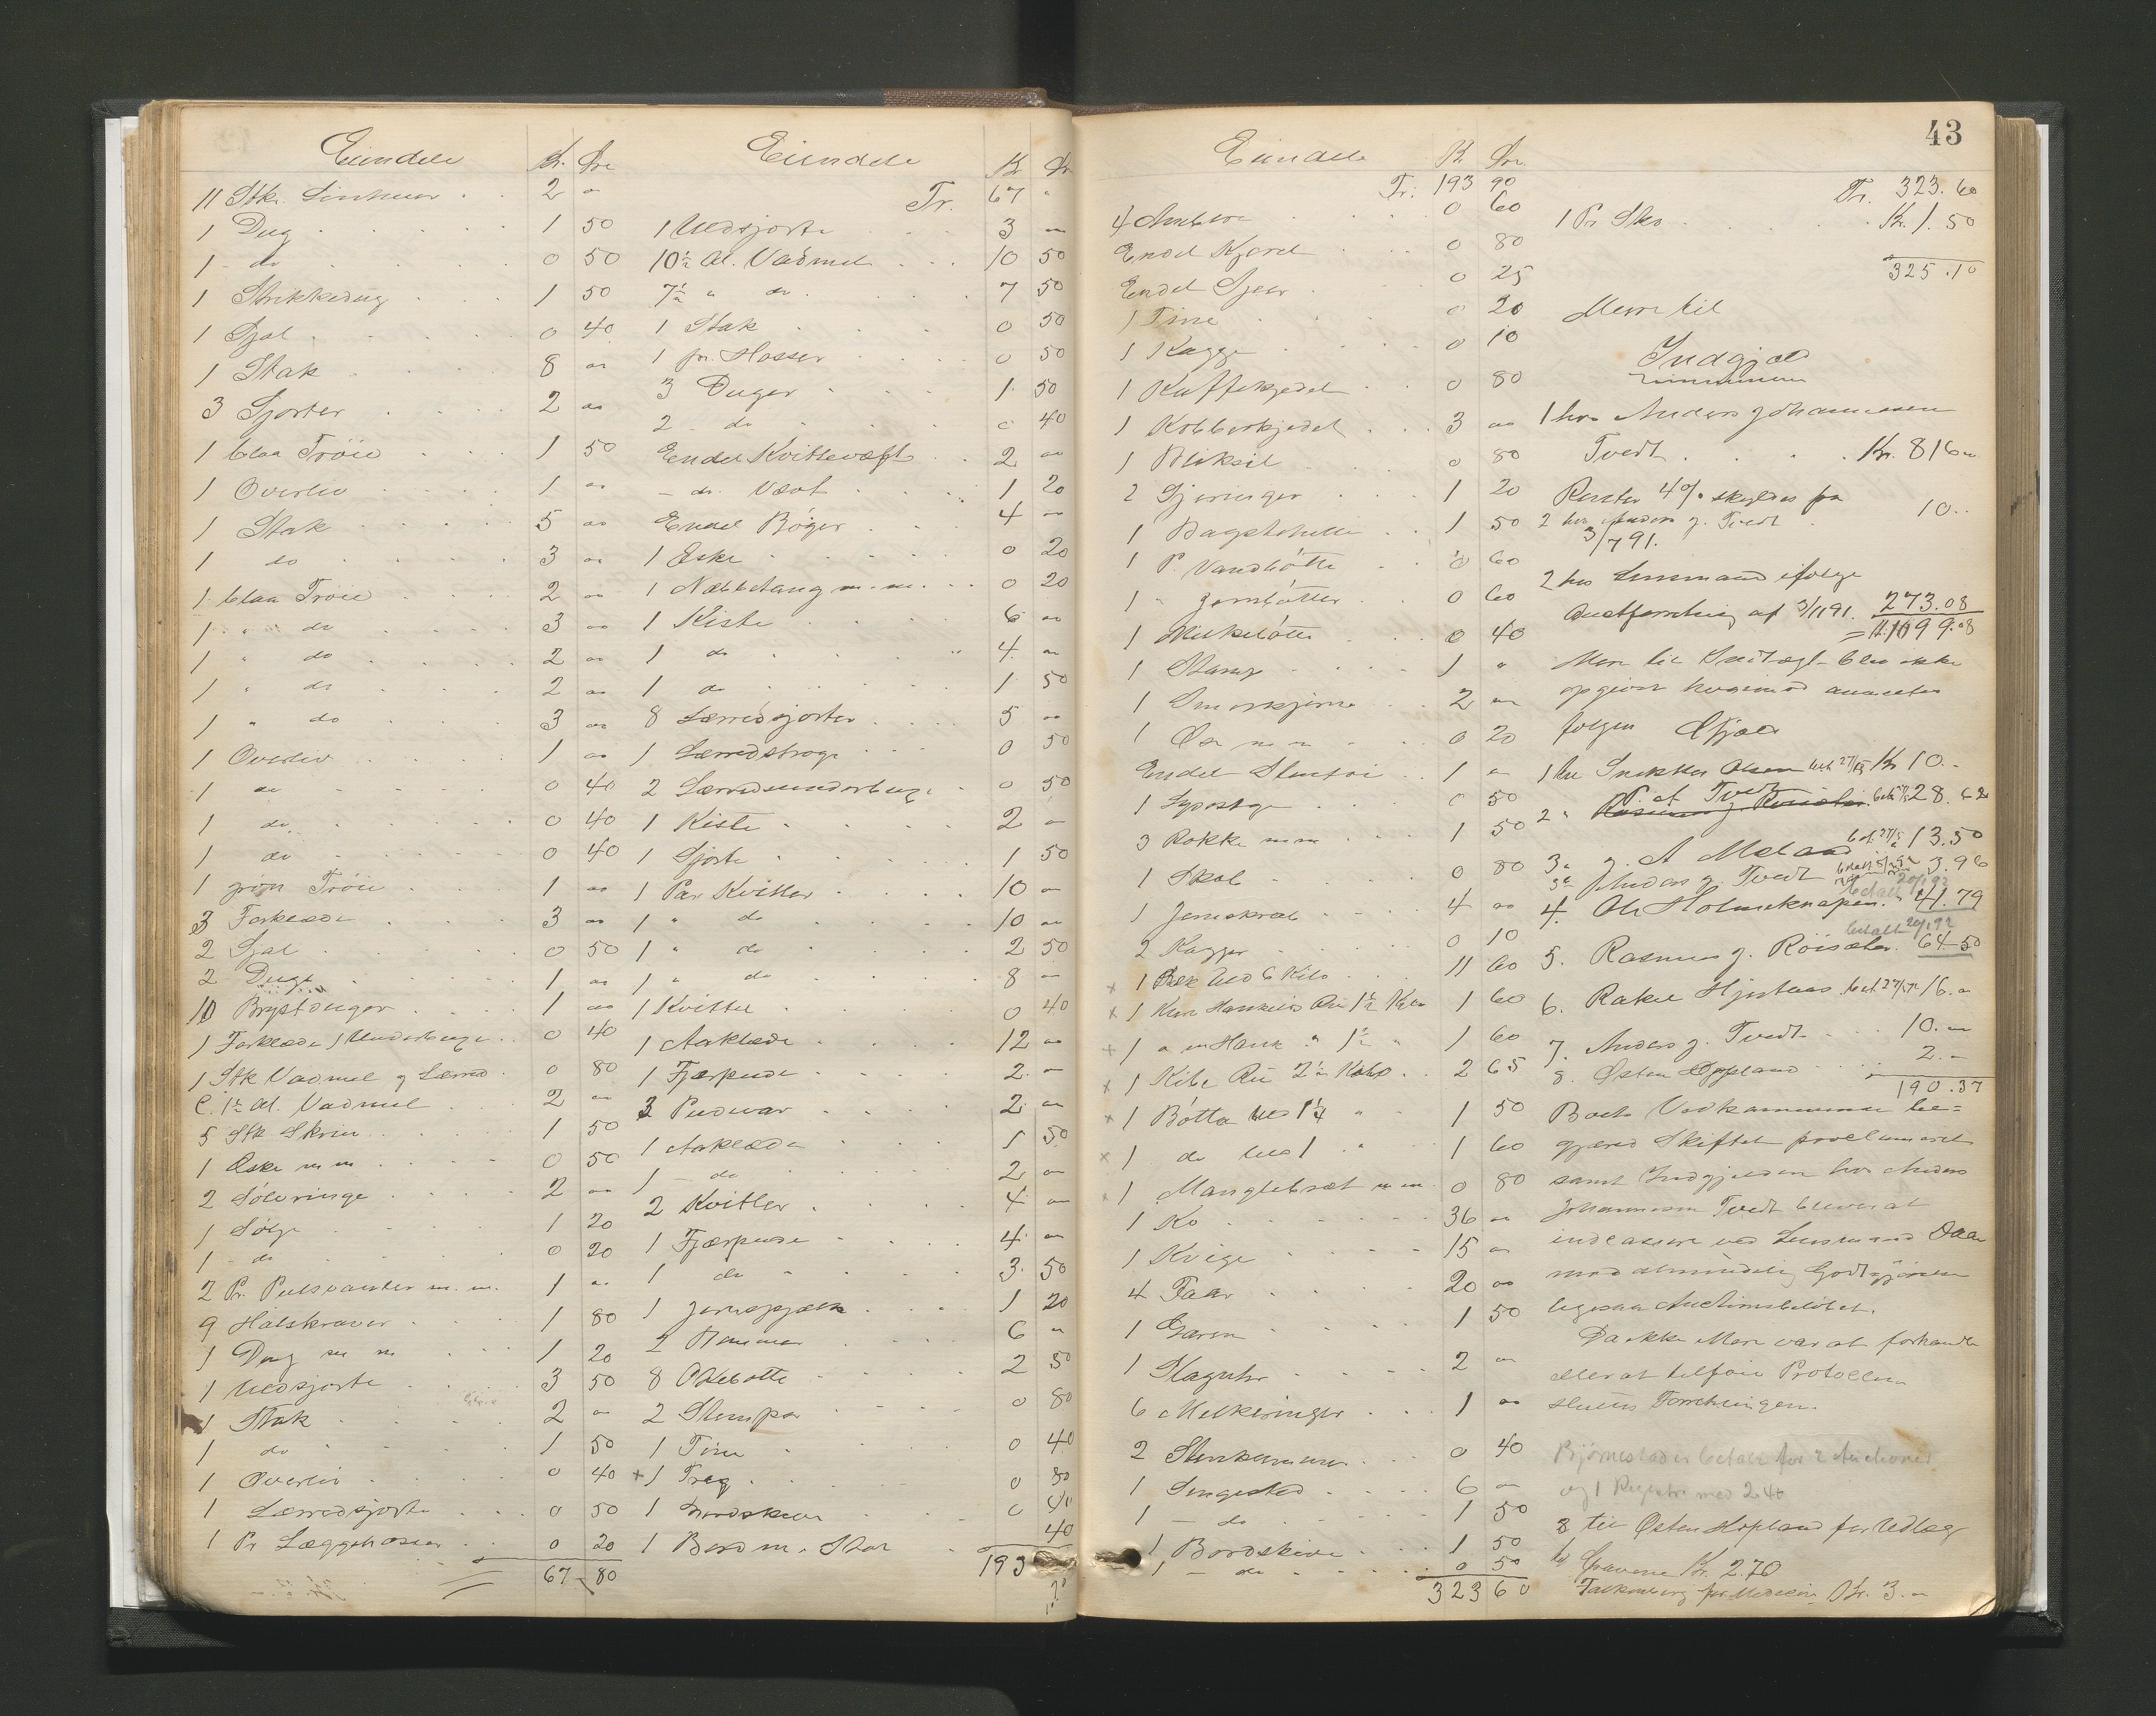 Eiendele Kr. Øre
11 Stkr. Linhuer 2 "
1 Dug 1 50
1 - do 0 50
1 Strikkedug 1 50
1 Sjal 0 40
1 Stak 8 "
3 Sjorter 2 "
1 blaa Trøie 1 50
1 Overliv 1 "
1 Stak 5 "
1 do 3 "
1 blaa Trøie 2 "
1 " do 3 "
1 " do 2 "
1 " do 2 "
1 " do 3 "
1 Overliv 1 "
1 do 0 40
1 do 0 40
1 do 0 40
1 grøn Trøie 1 "
3 Forklæde 3 "
2 Sjal 0 50
2 Duge 1 "
10 Brystduger 1 "
1 Forklæde 1 Underbuxe 0 40
1 Stk Vadmel og Lærred 0 80
C. 1½ Al. Vadmel 2 "
5 Stk Skrin 1 50
1 Æske m m 0 50
2 Sølvringe 2 "
1 Sølje 1 20
1 - do 0 20
2 Pr. Pulsvanter m. m. 1 "
9 Halskraver 1 80
1 Dug m m 1 20
1 Uldsjorte 3 50
1 Stak 2 "
1 do 1 50
1 Overliv 0 40
1 Lærredsjorte 0 50
1 Pr Læggehoser 0 20
67 - 80
Eiendele Kr Ør
Tr. 67 "
1 Uldsjorte 3 "
10½ Al. Vadmel 10 50
7½ " do 7 50
1 Stak 0 50
1 pr. Hosser 0 50
3 Duger 1 50
2 - do 0 40
Endel Kvittevæft 2 "
- do. Vævt 1 20
Endel Bøger 4 "
1 Eske 0 20
1 Næbbetang m. m. 0 20
1 Kiste 6 "
1 do 4 "
1 do 1 50
8 Lærredsjorter 5 "
1 Lærredstroge 0 50
2 Lærredsunderbuxe 0 50
1 Kiste 2 "
1 Sjorte 1 50
1 Par Kvitler 10 "
1 " do 10 "
1 " do 2 50
1 " do 8 "
1 Kvittel 0 40
1 Aaklæde 12 "
1 Fjærpude 2 "
3 Puduar 2 "
1 Aaklæde 1 50
1 - do 2 "
2 Kvitler 4 "
1 Fjærpude 4 "
1 do 3 50
1 Jernspjælk 1 20
2 Rammer 6 "
8 Olkbotte 2 50
2 Stampar 0 80
1 Tine 0 40
+ 1 Treg 0 80
1 Bordskive 0 40
1 Bord m. Star 40
193
Eiendele Kr Øre
Tr: 193 90
4 Ambare 0 60
Endel Kjørel 0 80
Endel Sjeer 0 25
1 Tine 0 20
1 Kagge 0 10
1 Kaffekjedel 0 80
1 Kobberkjedel 3 "
1 Bliksil 0 80
2 Gjeringer 1 20
1 Bagstehelle 1 50
1 P. Vandbøtte 0 60
1 " Jernbøtter 0 60
1 Melkebøtte 0 40
1 Stamp 1 "
1 Smørkjerne 2 "
1 Øse m m 0 20
Endel Stentøi 1 "
1 Lypestge 0 50
3 Rokke m m 1 50
1 Skab 0 80
1 Jernskrab 4 "
2 Kagger 0 10
x 1 Bæk Uld 6 Kilo 11 60
x 1 1½ Kilo 1 60
+ 1 " m Hank " 1½ " 1 60
x 1 2½ Kilo 2 65
x 1 Bøtta Uld 1¼ " 1 50
x 1 do Uld 1 " 1 60
1 Manglebræt m m 0 80
1 Ko 36 "
1 Kvige 15 "
4 Faar 20 "
1 Garen 1 50
1 Slaguhr 2 "
6 Melkeringer 1 "
2 Stenkrummer 0 40
1 Sengested 6 "
1 - do 1 50
1 Bordskive 1 50
1 - do 0 50
323 60
43
Tr. 323.60
1 Pr Sko Kr. 1. 50
325.10
Mere til
Indgjæld
1 hos Anders Johannessen
Tvedt Kr. 816 "
Renter 4% skyldes fra
2 hos Anders J. Tvedt 10..
3/7 91.
2 hos Lensmand ifølge
Auctforretning af 3/11 91. 273.08
= 1.1099.08
Mere til Indtægt blev ikke
opgivet hvorimod anmeldtes
følgen Gjæld
1 til Snekker Olsen bet 27/5 Kr 10.-
2 " P. A Tvedt bet 27/5 28.62
3 " J. A Melaas bet. 27/5 13.50
3a Anders J. Tvedt 3.96
betalt 20/1 92
4. Ole Holmeknapen " 41.79
betalt 20/1 92
5. Rasmus J. Röisæter 64-50
6. Rakel Hjertaas bet 27/5 16."
7. Anders J. Tvedt 10.-
8. Østen Oppland 2.-
190.37
Boets Vedkommende be=
gjæred Skiftet proclameret
samt Indgjælden hos Anders
Johannessen Tvedt blever at
indcassere ved Lensmand Daae
mod almindelig Godtgjørelse
ligesaa Auctionsbeløbet.
Da ikke Mere var at forhandle
eller at tilføie Protocollen
sluttes Forretningen.
Bjørnestad er betalt for 2 Auctioner
og 1 Registr. med 2.40
8 til Østen Hopland for Udlæg
til Gravene Kr. 2.70
Falkenberg for Medicin Kr. 3.-